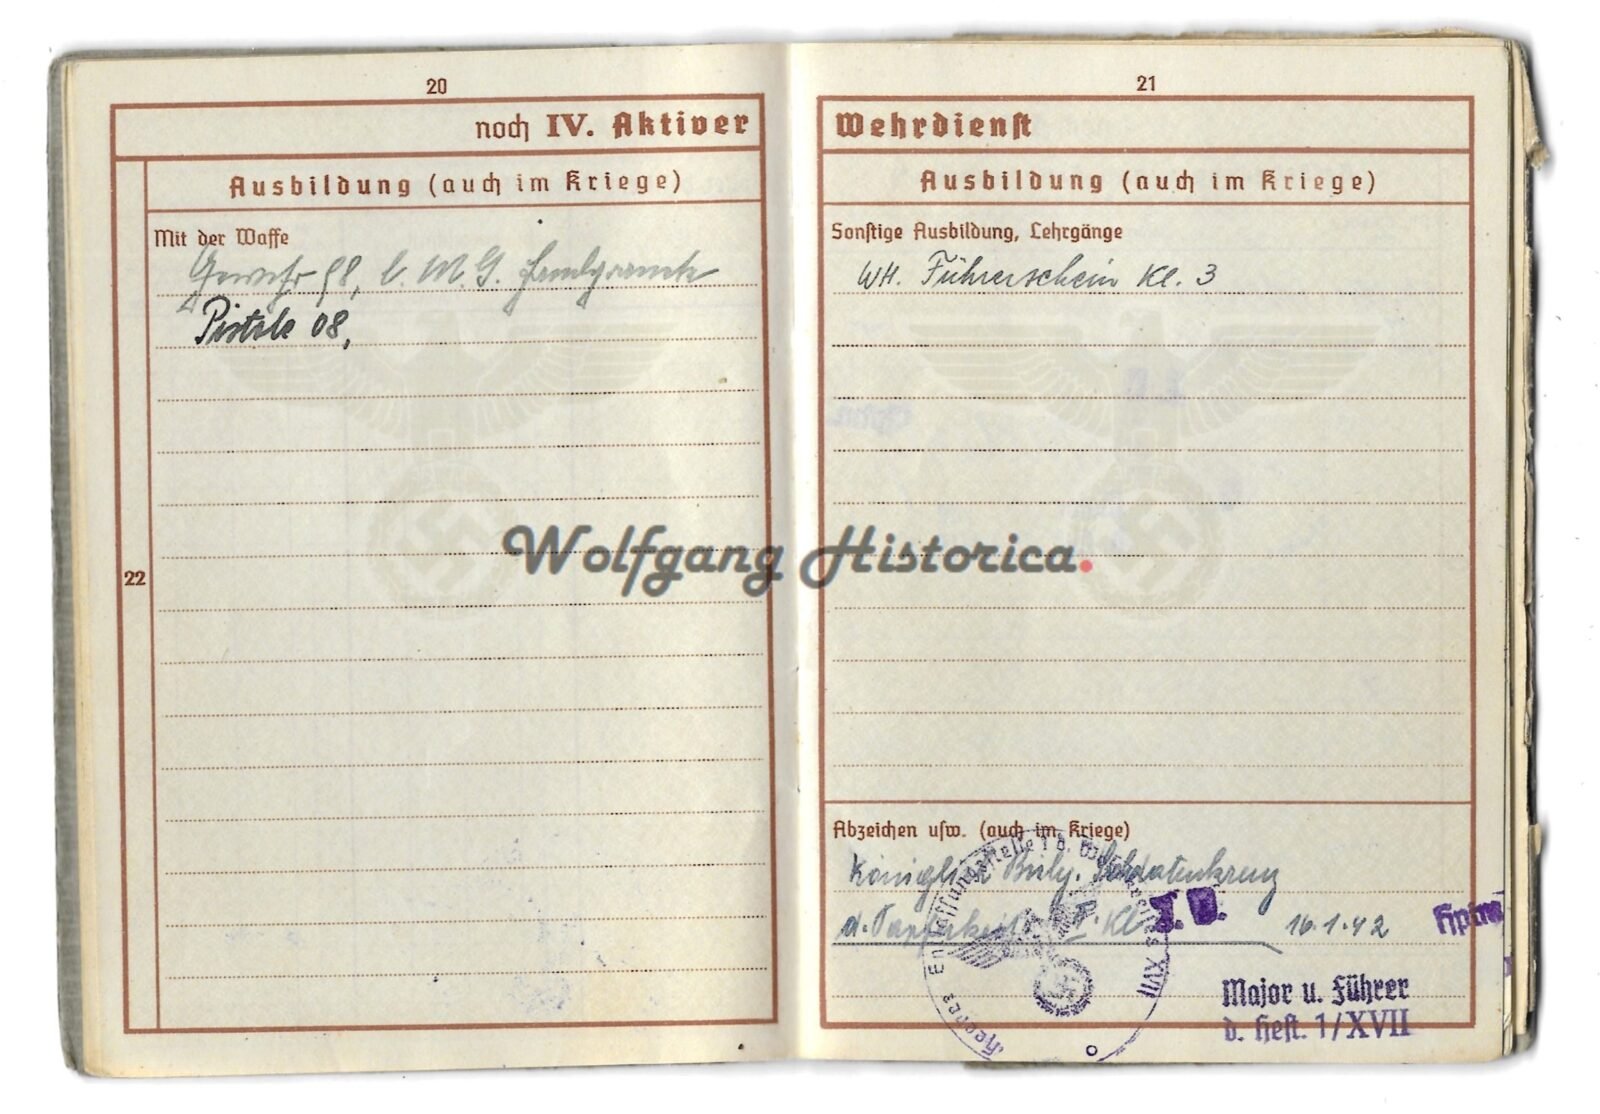 20
noch IV. Aktiver
Ausbildung (auch im Kriege)
Mit der Waffe
Gewehr 98, l. M. G. Handgranate
Pistole 08,
22
21
Wehrdienst
Ausbildung (auch im Kriege)
Sonstige Ausbildung, Lehrgänge
WH. Führerschein Kl. 3
Wolfgang Historica.
Abzeichen usw. (auch im Kriege)
Königlich Bulg. Soldatenkreuz
d. Tapferkeit Kl. 16.1.42
Heeres Entlassungsstelle 1 d. Wehrkreises XVII
J. V.
Hptm
Major u. Führer
d. Hest. 1/XVII